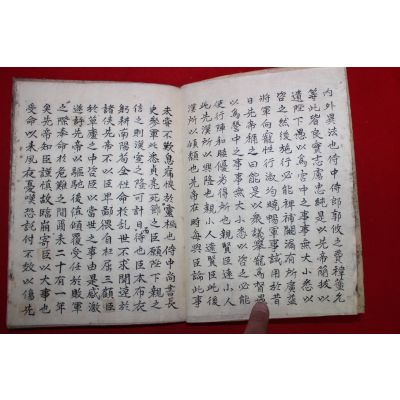 內外異法也侍中侍郎郭攸之費褘董允
等此皆良實志慮忠純是以先帝簡拔以
遺陛下愚以爲宮中之事事無大小悉以
咨之然後施行必能裨補闕漏有所廣益
將軍向寵性行淑均曉暢軍事試用於昔
日先帝稱之曰能是以衆議舉寵爲督愚
以爲營中之事事無大小悉以咨之必能
使行陣和睦優劣得所也親賢臣遠小人
此先漢所以興隆也親小人遠賢臣此後
漢所以傾頹也先帝在時每與臣論此事
未嘗不歎息痛恨於靈桓也侍中尚書長
史參軍此悉貞亮死節之臣願陛下親之
信之則漢室之隆可計日而待也臣本布衣
躬耕南陽苟全性命於亂世不求聞達於
諸侯先帝不以臣卑鄙猥自枉屈三顧臣
於草廬之中咨臣以當世之事由是感激
遂許先帝以驅馳後値傾覆受任於敗軍
之際奉命於危難之間爾來二十有一年
矣先帝知臣謹愼故臨崩寄臣以大事也
受命以來夙夜憂嘆恐託付不效以傷先